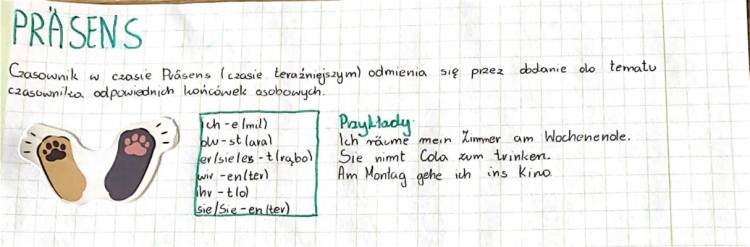 PRÄSENS
Czasownik w czasie Präsens (czasie teraźniejszym) odmienia się przez dodanie do tematu
czasownika odpowiednich końcówek osobowych.
ich -e (mil)
du -st (ara)
er/sie/es -t (rąbo)
wir -en (ter)
ihr -t (o)
sie/Sie -en (ter)
Przykłady:
Ich räume mein Zimmer am Wochenende.
Sie nimt Cola zum trinken.
Am Montag gehe ich ins Kino.